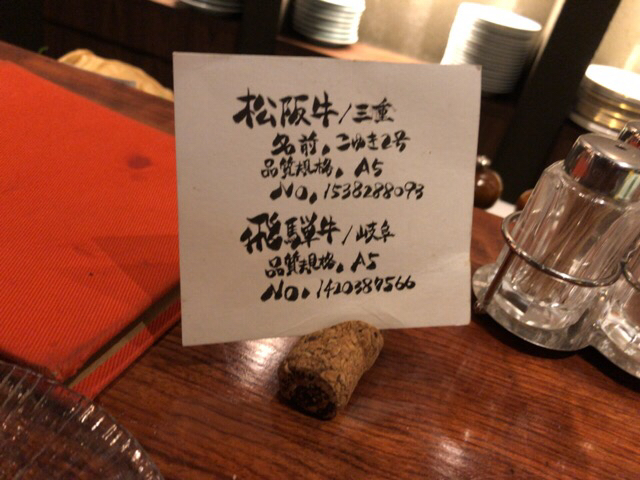 松阪牛/三重
名前。こゆき2号
品質規格。A5
No。1538288093
飛騨牛/岐阜
品質規格。A5
No。1420387566